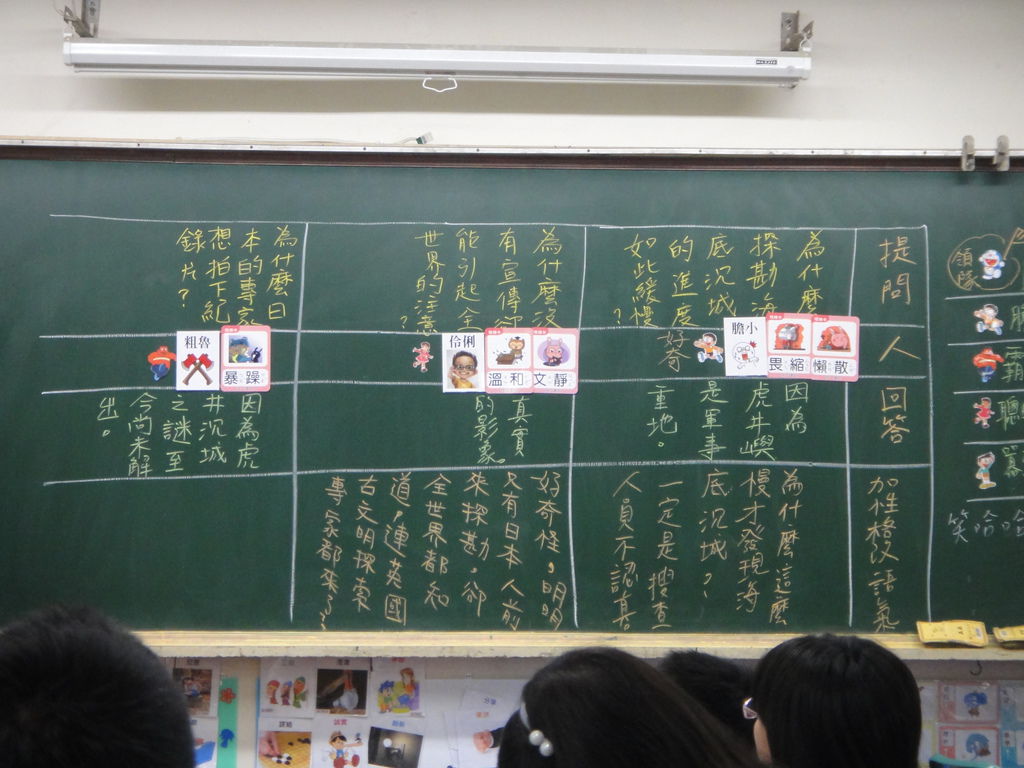 提問
為什麼
探勘海
底沉城
的進度
如此緩慢
?
為什麼沒
有宣傳卻
能引起全
世界的注意
?
為什麼日
本的專家
想拍下紀
錄片?
人
懶散
畏縮
膽小
好奇
文靜
溫和
伶俐
暴躁
粗魯
回答
因為
虎井嶼
是軍事
重地。
真實
的影象。
因為虎
井沉城
之謎至
今尚未解
出。
加性格改語氣
為什麼這麼
慢才發現海
底沉城?
一定是搜查
人員不認真
好奇怪,明明
只有日本人前
來探勘。卻
全世界都和
道,連英國
古文明探索
專家都來了?
領隊
霸
聰
笑哈哈